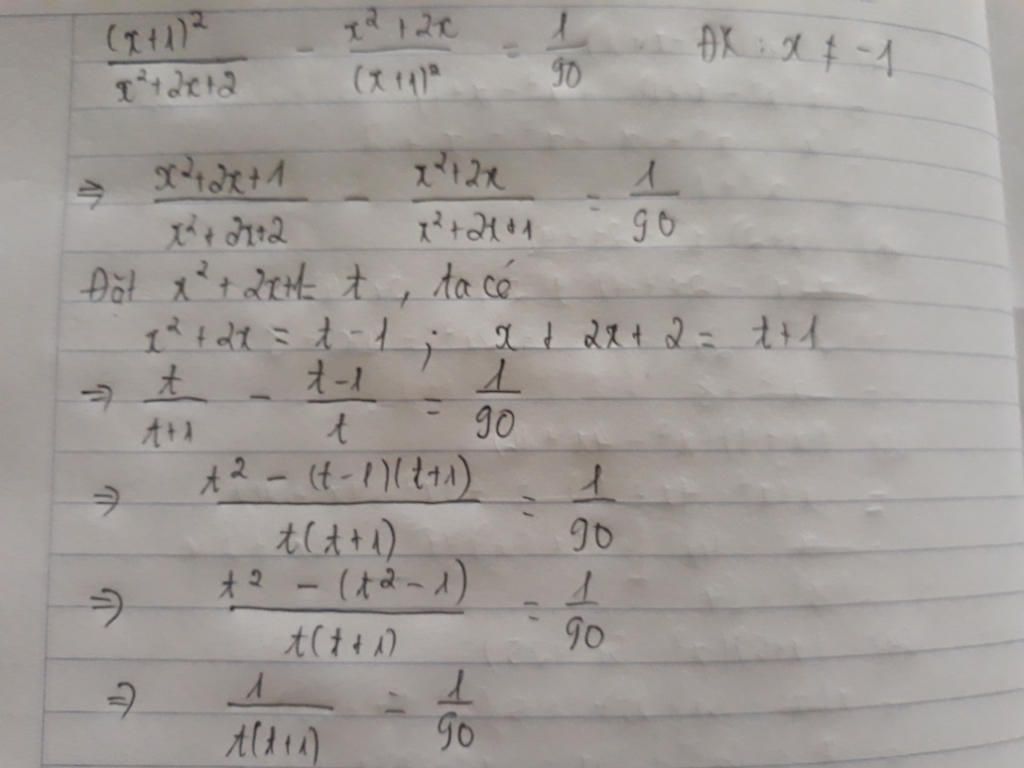 (x+1)²/(x²+2x+2) - (x²+2x)/(x+1)² = 1/90 . ĐK : x ≠ -1
⇒ (x²+2x+1)/(x²+2x+2) - (x²+2x)/(x²+2x+1) = 1/90
Đặt x²+2x+1= t , ta có
x²+2x = t-1 ; x + 2x + 2 = t+1
⇒ t/(t+1) - (t-1)/t = 1/90
⇒ (t² - (t-1)(t+1))/(t(t+1)) = 1/90
⇒ (t² - (t²-1))/(t(t+1)) = 1/90
⇒ 1/(t(t+1)) = 1/90